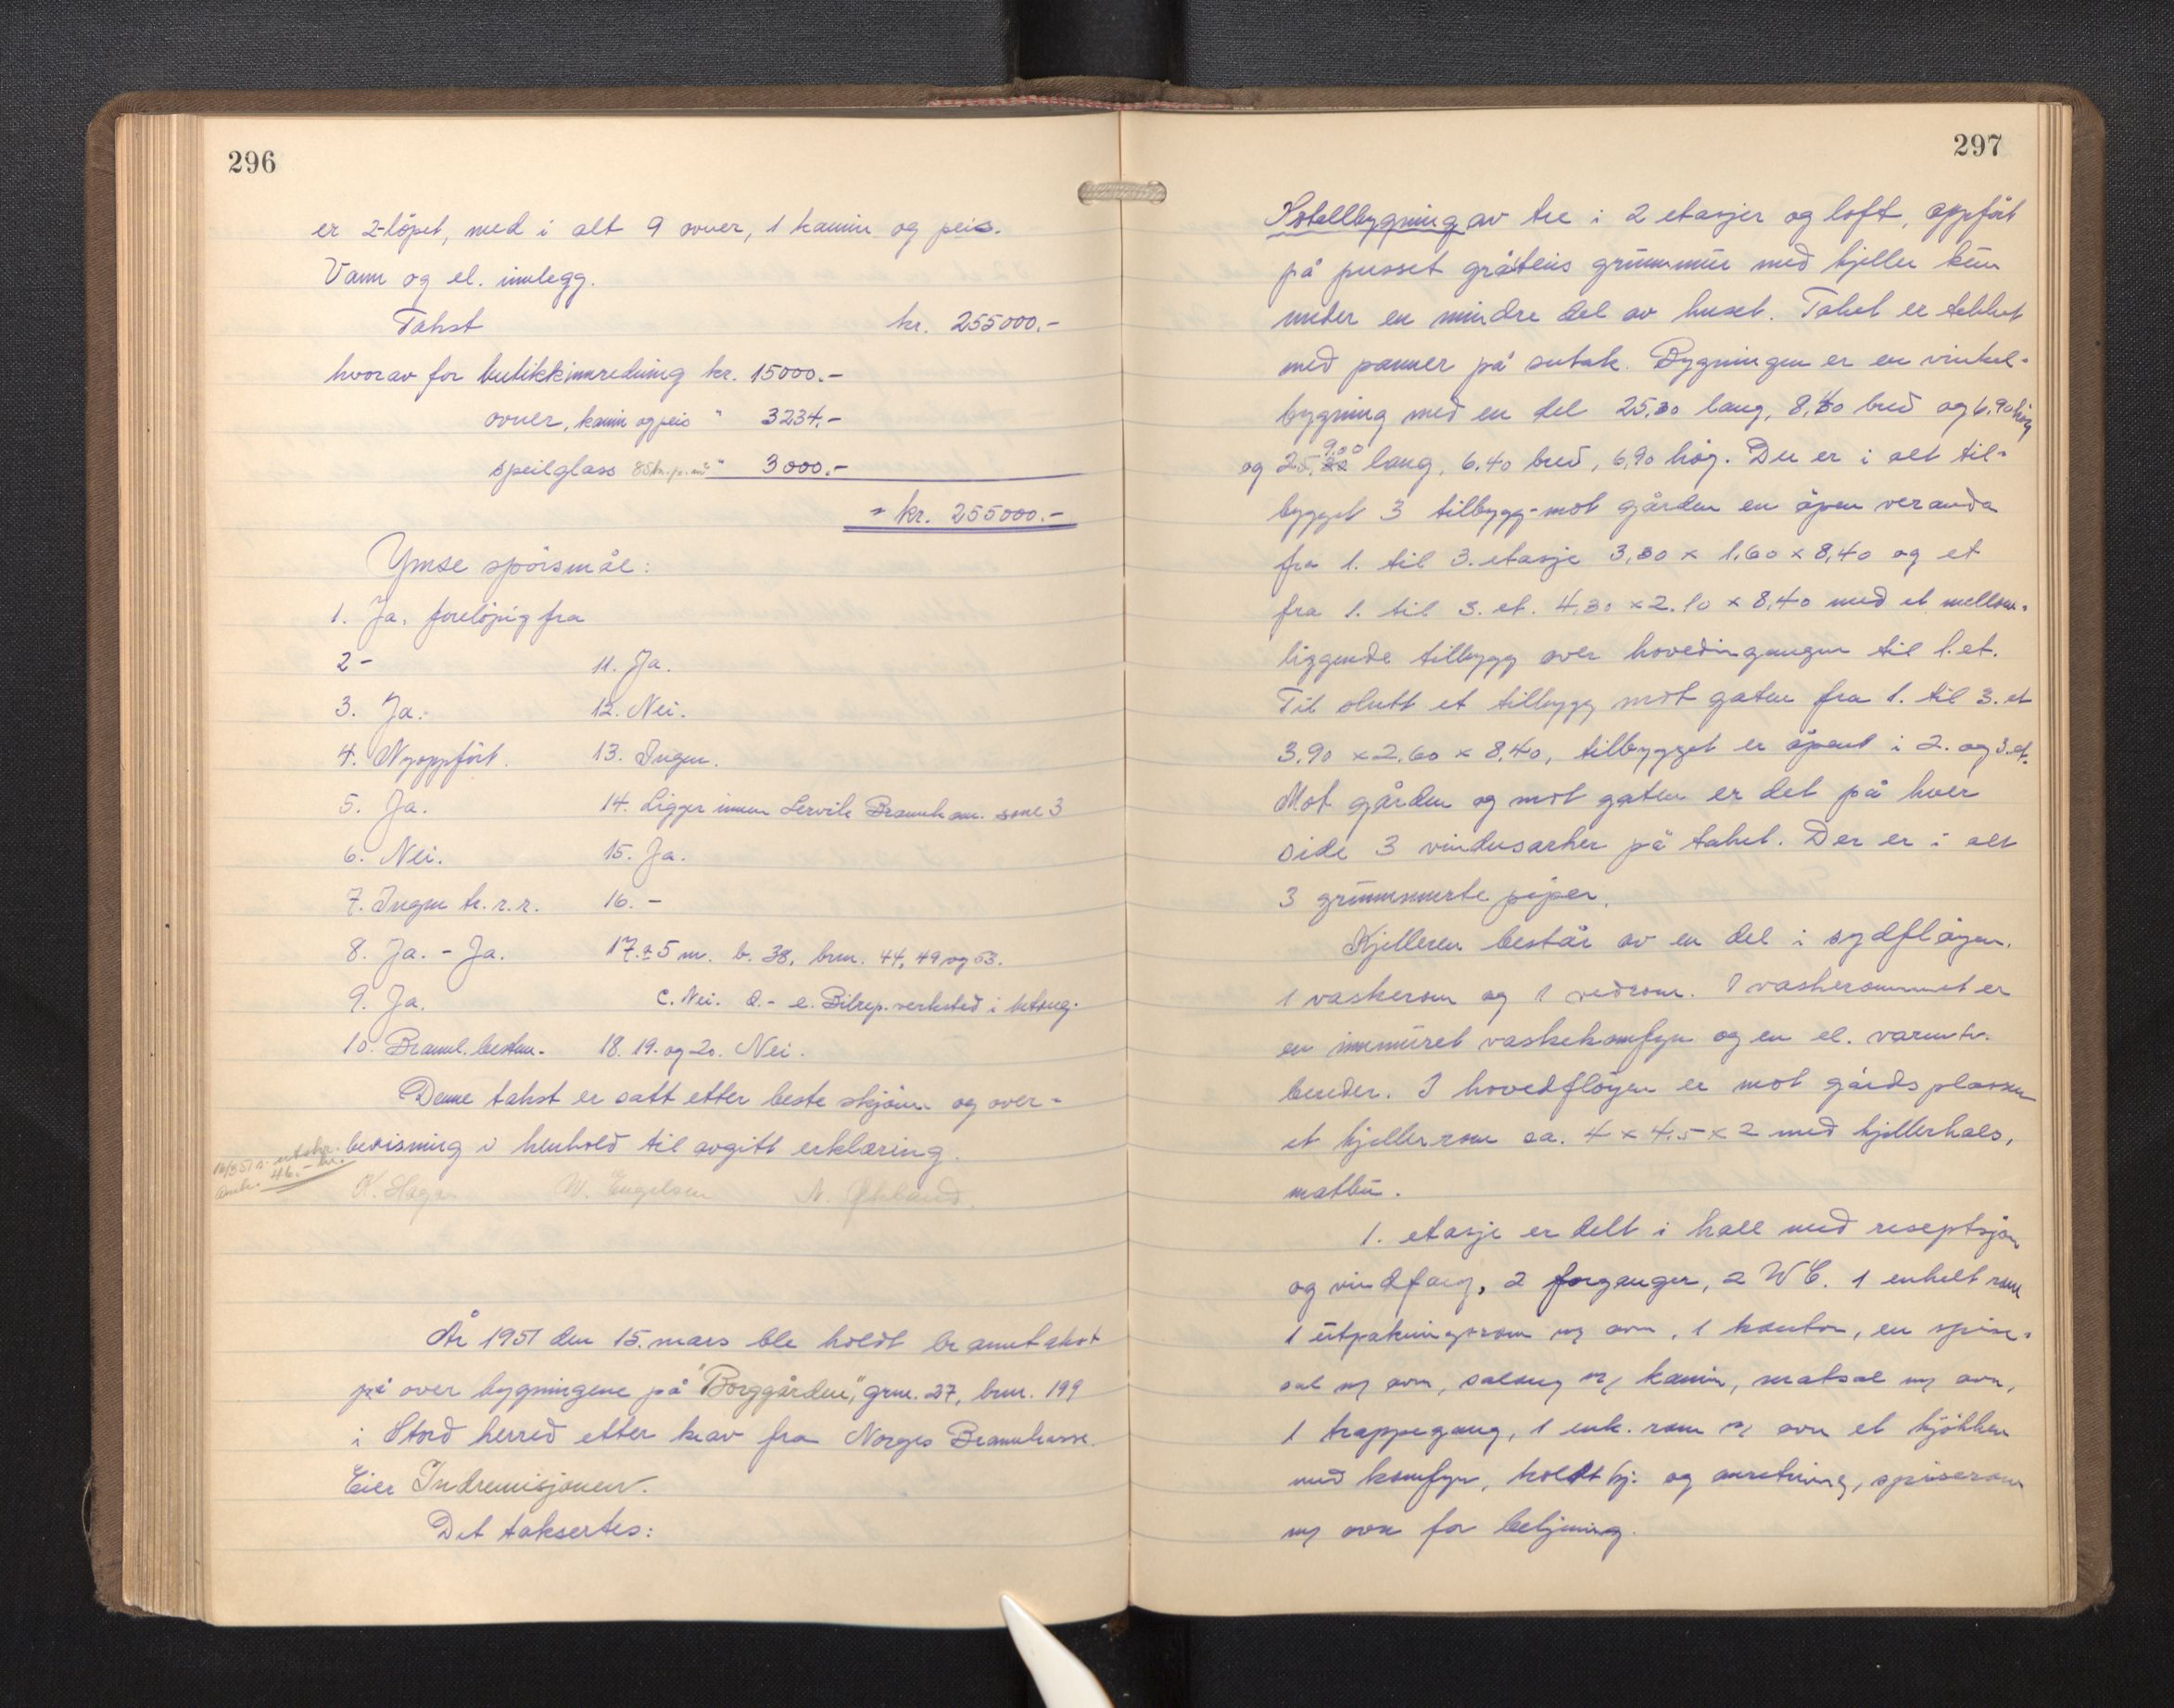 296
er 2-löpet, med i alt 9 ovner, 1 kamin og peis.
Vann og el. innlegg.
Takst kr. 255000.-
hvorav for butikkinnredning kr. 15000.-
ovner, kamin og peis " 3234.-
speilglass 85 kr. p. m² " 3000.-
kr. 255000.-
Ymse spörsmål:
1. Ja, forelöpig fra
2- 11. Ja.
3. Ja. 12. Nei.
4. Nyoppfört. 13. Ingen.
5. Ja. 14. Ligger innen Lervik Brannk om. sone 3
6. Nei. 15. Ja.
7. Ingen tr. r. r. 16. -
8. Ja. - Ja. 17. a 5 m. b. 38, brn. 44, 49 og 53.
9. Ja. c. Nei. d. - e. Bilrep. verksted i betong.
10. Brannl. bestem. 18. 19. og 20. Nei.
Denne takst er satt etter beste skjönn og over-
bevisning i henhold til avgitt erklæring.
46.- kr.
K. Haga W. Engelsen N. Økland
År 1951 den 15. mars ble holdt branntakst
på over bygningene på "Borggården", grnr. 27, brnr. 199
i Stord herred etter krav fra Norges Brannkasse.
Eier Indremisjonen.
Det taksertes:
297
Hotellbygning av tre i 2 etasjer og loft, oppfört
på pusset gråsteins grunnmur med kjeller kun
under en mindre del av huset. Taket er tekket
med panner på sutak. Bygningen er en vinkel-
bygning med en del 25,30 lang, 8,40 bred og 6,90 hög
og 9,00 lang, 6.40 bred, 6,90 hög. Der er i alt til-
bygget 3 tilbygg - mot gården en åpen veranda
fra 1. til 3. etasje 3,30 x 1,60 x 8,40 og et
fra 1. til 3. et. 4,30 x 2.10 x 8,40 med et mellom-
liggende tilbygg over hovedinngangen til 1. et.
Til slutt et tilbygg mot gaten fra 1. til 3. et
3.90 x 2.60 x 8,40, tilbygget er åpent i 2. og 3. et.
Mot gården og mot gaten er det på hver
side 3 vindusarker på taket. Der er i alt
3 grunnmurte piper.
Kjelleren består av en del i sydflöyen.
1 vaskerom og 1 vedrom. I vaskerommet er
en innmuret vaskekomfyr og en el. varmtv.
bereder. I hovedflöyen er mot gårdsplassen
et kjellerrom ca. 4 x 4,5 x 2 med kjellerhals,
matbu.
1. etasje er delt i hall med resepsjon
og vindfang, 2 forganger, 2 WC. 1 enkelt rom
1 utpakningsrom m/ ovn, 1 kontor, en spise-
sal m/ ovn, salong m/ kamin, matsal m/ ovn,
1 trappegang, 1 enk. rom m/ ovn et kjökken
med komfyr, koldt kj. og anretning, spiserom
m/ ovn for betjening.